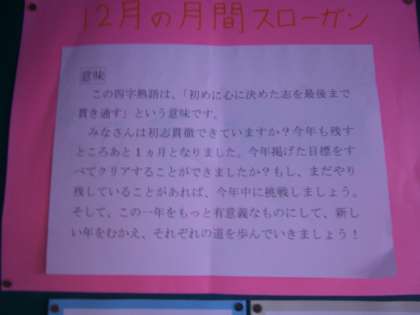 12月の月間スローガン
意味
この四字熟語は、「初めに心に決めた志を最後まで
貫き通す」という意味です。
みなさんは初志貫徹できていますか？今年も残す
ところあと１ヵ月となりました。今年掲げた目標をす
べてクリアすることができましたか？もし、まだやり
残していることがあれば、今年中に挑戦しましょう。
そして、この一年をもっと有意義なものにして、新し
い年をむかえ、それぞれの道を歩んでいきましょう！